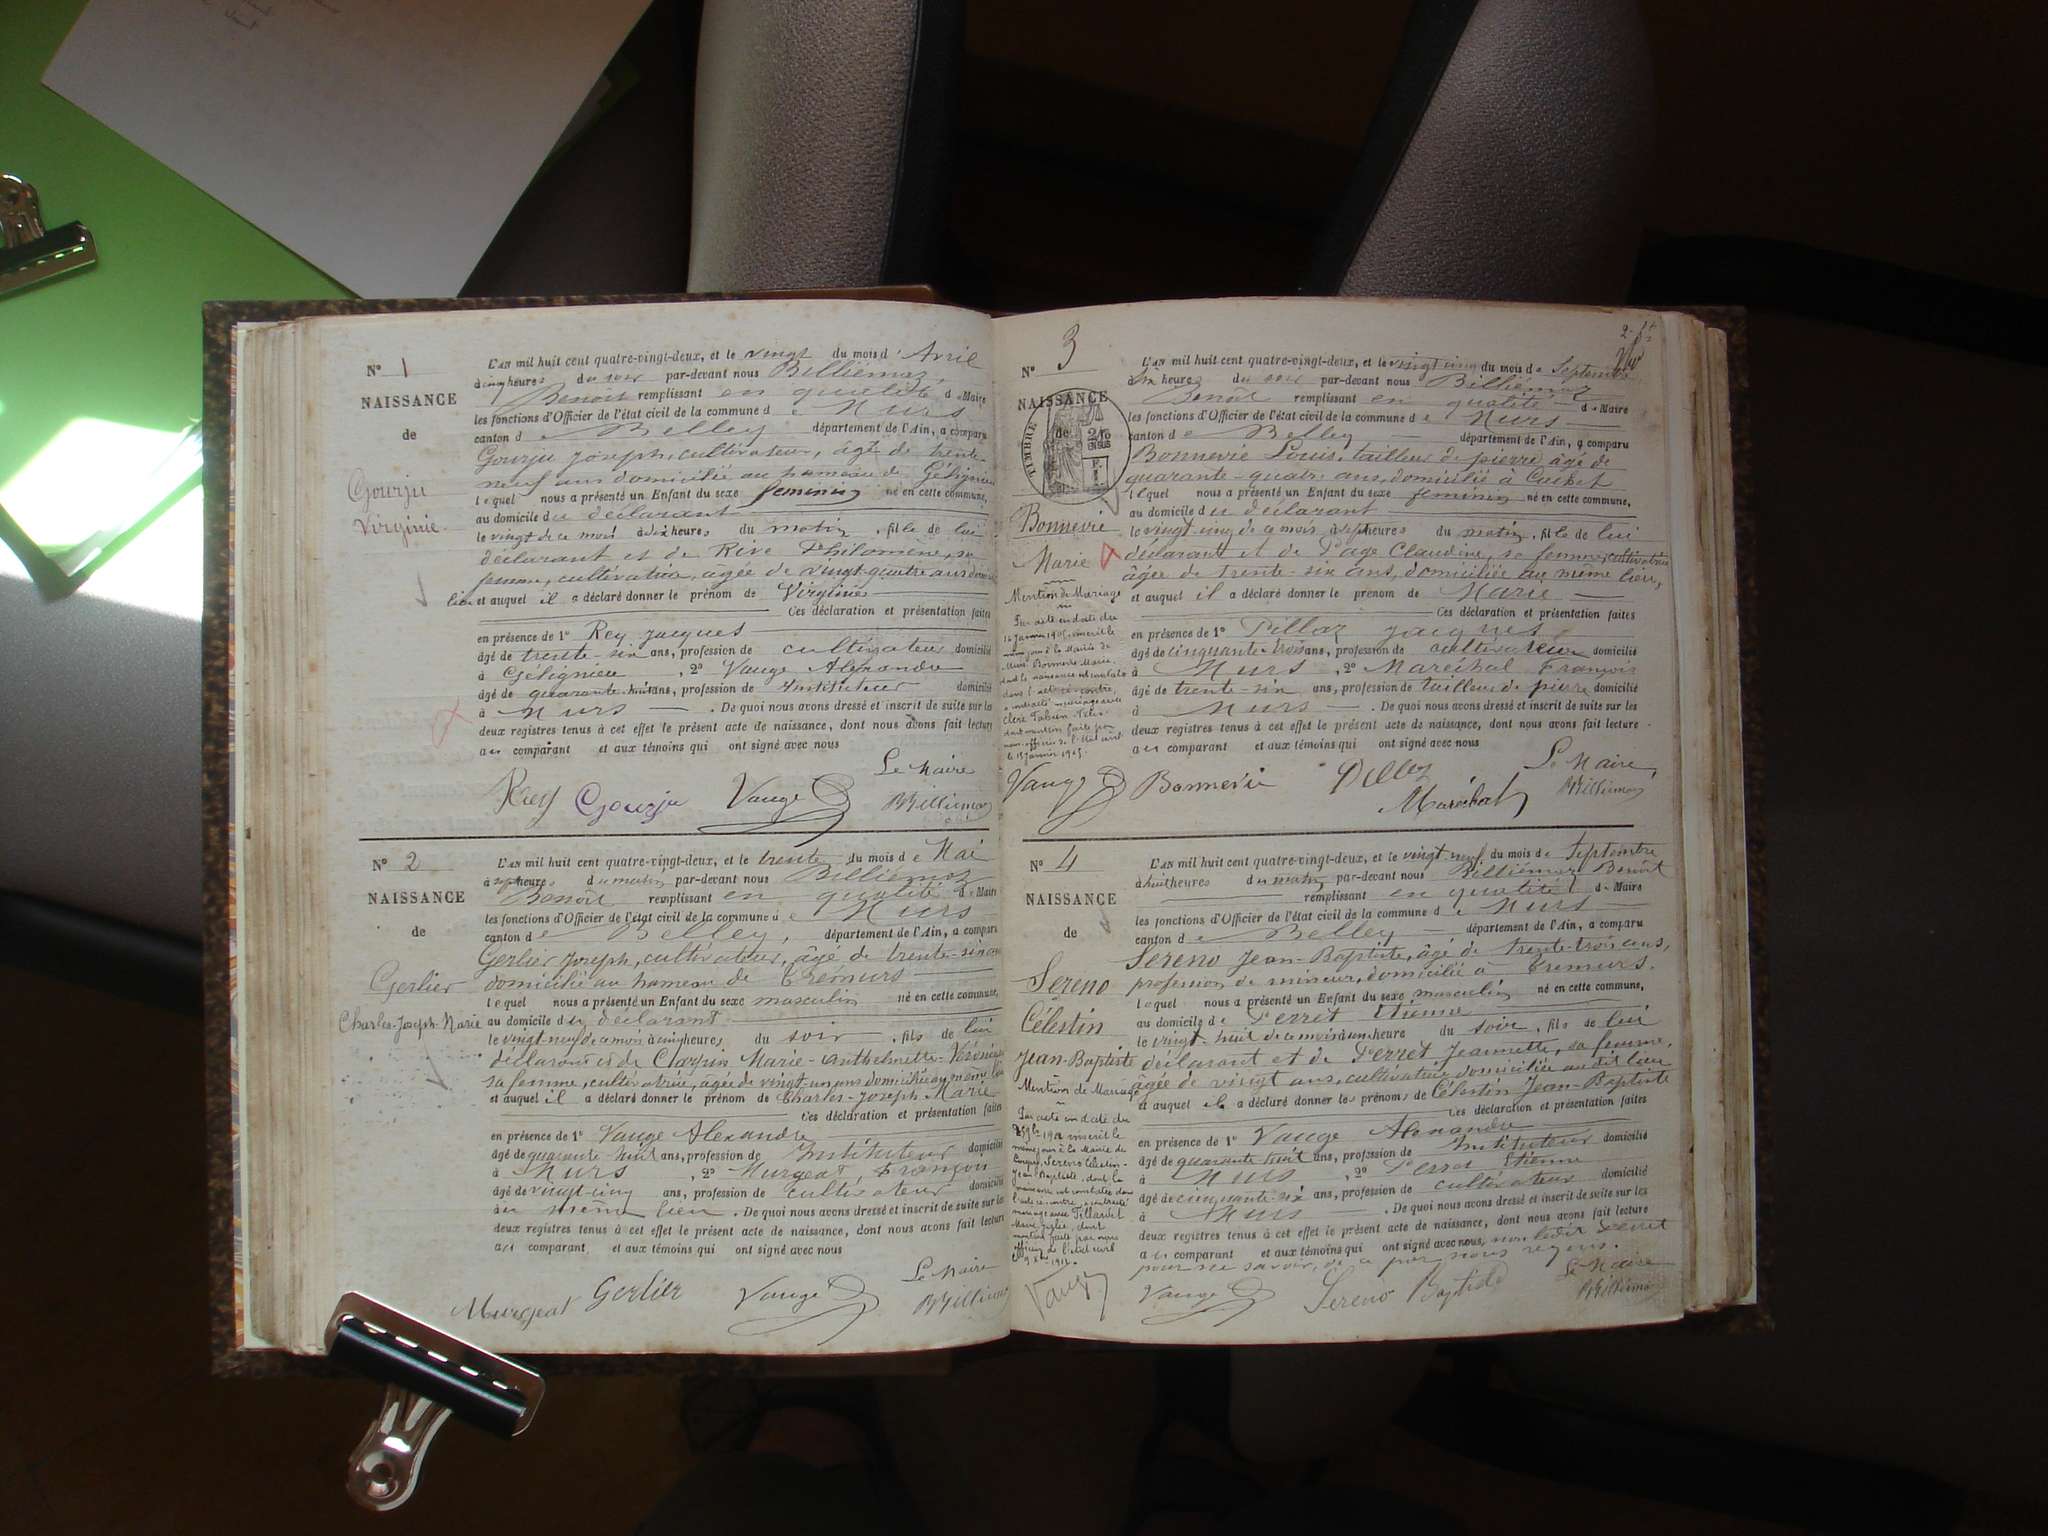 N° 1
NAISSANCE
de
Gourju
Virginie
L'an mil huit cent quatre-vingt-deux, et le vingt du mois d'Avril
à cinq heures du soir par-devant nous Billiémaz
Benoît remplissant en qualité de Maire
les fonctions d'Officier de l'état civil de la commune de Murs
canton de Belley département de l'Ain, a comparu
Gourju Joseph, cultivateur, âgé de trente-
neuf ans domicilié au hameau de Gélignieu
lequel nous a présenté un Enfant du sexe féminin né en cette commune,
au domicile du déclarant
le vingt de ce mois à dix heures du matin, fille de lui
déclarant et de Rive Philomène, sa
femme, cultivatrice, âgée de vingt-quatre ans
lieu et auquel il a déclaré donner le prénom de Virginie
Ces déclaration et présentation faites
en présence de 1° Rey Jacques
âgé de trente-six ans, profession de cultivateur domicilié
à Gélignieu, 2° Vauge Alexandre
âgé de quarante-huit ans, profession de Instituteur domicilié
à Murs. De quoi nous avons dressé et inscrit de suite sur les
deux registres tenus à cet effet le présent acte de naissance, dont nous avons fait lecture
au comparant et aux témoins qui ont signé avec nous
Le Maire
Rey Gourju Vauge BBilliémaz
N° 2
NAISSANCE
de
Gerlier
Charles-Joseph-Marie
L'an mil huit cent quatre-vingt-deux, et le trente du mois de Mai
à sept heures du matin par-devant nous Billiémaz
Benoît remplissant en qualité de Maire
les fonctions d'Officier de l'état civil de la commune de Murs
canton de Belley, département de l'Ain, a comparu
Gerlier Joseph, cultivateur, âgé de trente-six ans
domicilié au hameau de Crémurs
lequel nous a présenté un Enfant du sexe masculin né en cette commune,
au domicile du déclarant
le vingt-neuf de ce mois à cinq heures du soir, fils de lui
déclarant et de Marie-Anthelmette-
sa femme, cultivatrice, agée de vingt-un ans domiciliée au même lieu
et auquel il a déclaré donner le prénom de Charles-Joseph Marie
Ces déclaration et présentation faites
en présence de 1° Vauge Alexandre
âgé de quarante huit ans, profession de Instituteur domicilié
à Murs, 2° Murgeat, François
âgé de vingt-cinq ans, profession de cultivateur domicilié
au même lieu. De quoi nous avons dressé et inscrit de suite sur les
deux registres tenus à cet effet le présent acte de naissance, dont nous avons fait lecture
au comparant et aux témoins qui ont signé avec nous
Le Maire
Murgeat Gerlier Vauge BBilliémaz
N° 3
NAISSANCE
de
TIMBRE
Bonnevie
Marie
Mention de Mariage
Par acte en date du
L'an mil huit cent quatre-vingt-deux, et le vingt cinq du mois de Septembre
à six heures du soir par-devant nous Billiémaz
Benoît remplissant en qualité de Maire
les fonctions d'Officier de l'état civil de la commune de Murs
canton de Belley département de l'Ain, a comparu
Bonnevie Louis, tailleur de pierre, âgé de
quarante-quatre ans, domicilié à
lequel nous a présenté un Enfant du sexe féminin né en cette commune,
au domicile du déclarant
le vingt-cinq de ce mois à sept heures du matin, fille de lui
déclarant et de Page Claudine, sa femme, cultivatrice
âgée de trente-six ans, domiciliée au même lieu,
et auquel il a déclaré donner le prénom de Marie
Ces déclaration et présentation faites
en présence de 1° Pillaz Jacques
âgé de cinquante-trois ans, profession de cultivateur domicilié
à Murs, 2° Maréchal François
âgé de trente-six ans, profession de tailleur de pierre domicilié
à Murs. De quoi nous avons dressé et inscrit de suite sur les
deux registres tenus à cet effet le présent acte de naissance, dont nous avons fait lecture
au comparant et aux témoins qui ont signé avec nous
Le Maire,
Vauge Bonnevie Pillaz Maréchal BBilliémaz
N° 4
NAISSANCE
de
Sereno
Célestin
Jean-Baptiste
Mention de Mariage
Par acte en date du
L'an mil huit cent quatre-vingt-deux, et le vingt-neuf du mois de Septembre
à huit heures du matin par-devant nous Billiémaz Benoît
remplissant en qualité de Maire
les fonctions d'Officier de l'état civil de la commune de Murs
canton de Belley département de l'Ain, a comparu
Sereno Jean-Baptiste, âgé de trente-trois ans,
profession de mineur, domicilié à Cremurs.
lequel nous a présenté un Enfant du sexe masculin né en cette commune,
au domicile de Perret Etienne
le vingt-huit de ce mois à une heure du soir, fils de lui
déclarant et de Perret Jeannette, sa femme,
âgée de vingt ans, cultivatrice domiciliée au dit lieu
et auquel il a déclaré donner les prénoms de Célestin Jean-Baptiste
Ces déclaration et présentation faites
en présence de 1° Vauge Alexandre
âgé de quarante huit ans, profession de Instituteur domicilié
à Murs, 2° Perret Etienne
âgé de cinquante-six ans, profession de cultivateur domicilié
à Murs. De quoi nous avons dressé et inscrit de suite sur les
deux registres tenus à cet effet le présent acte de naissance, dont nous avons fait lecture
au comparant et aux témoins qui ont signé avec nous, non ledit Perret
pour ne savoir, de ce par nous requis.
Le Maire
Vauge Vauge Sereno Baptiste BBilliémaz